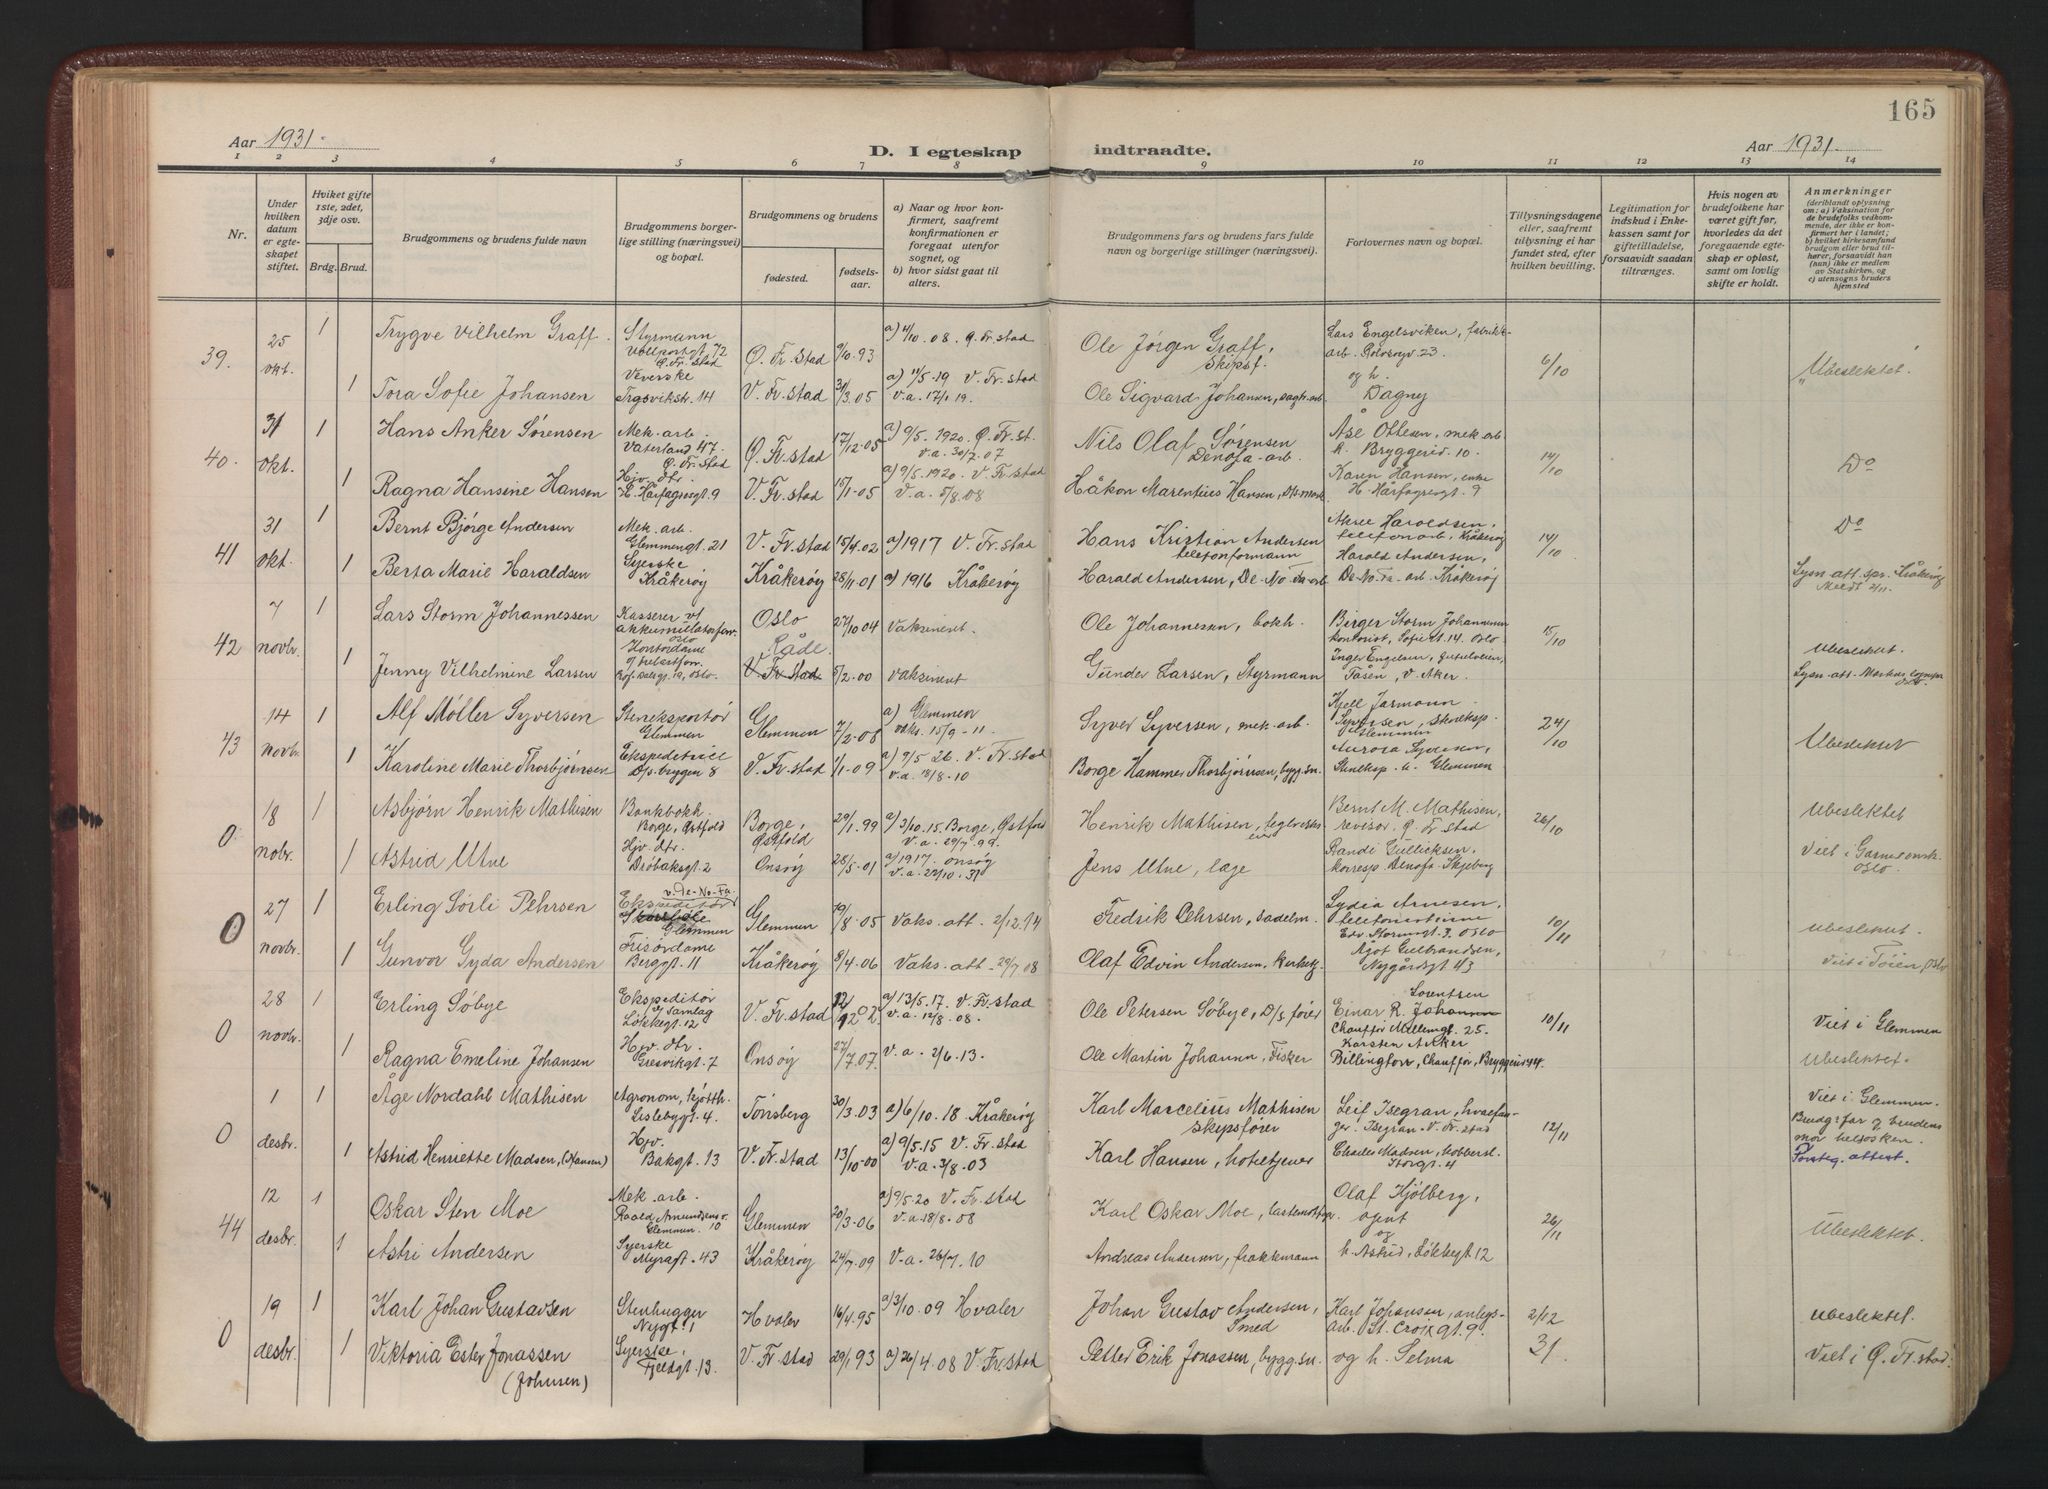 165
Aar 1931.
D. I egteskap
indtraadte.
Aar 1931.
1 2 3 4 5 6 7 8 9 10 11 12 13 14
Nr.
Under hvilken datum er egteskapet stiftet.
Hviket gifte 1ste, 2det, 3dje osv.
Brdg. Brud.
Brudgommens og brudens fulde navn
Brudgommens borgerlige stilling (næringsvei) og bopæl.
Brudgommens og brudens
fødested.
fødsels-aar.
a) Naar og hvor konfirmert, saafremt konfirmationen er foregaat utenfor sognet, og
b) hvor sidst gaat til alters.
Brudgommens fars og brudens fars fulde navn og borgerlige stillinger (næringsvei).
Forlovernes navn og bopæl.
Tillysningsdagene eller, saafremt tillysning ei har fundet sted, efter hvilken bevilling.
Legitimation for indskud i Enkekassen samt for giftetilladelse, forsaavidt saadan tiltrænges.
Hvis nogen av brudefolkene har været gift før, hvorledes da det foregaaende egteskap er opløst, samt om lovlig skifte er holdt.
Anmerkninger
(deriblandt oplysning om: a) Vaksination for de brudefolks vedkommende, der ikke er konfirmert her i landet; b) hvilket kirkesamfund brudgom eller brud tilhører, forsaavidt han (hun) ikke er medlem av Statskirken, og c) utensogns bruders hjemsted
39. 25 okt. 1 Trygve Vilhelm Graff. Styrmann Vollportgt. 72 Ø. Fr. stad Ø. Fr. stad 9/10.93 a) 4/10.08. Ø. Fr. stad Ole Jørgen Graff, Skipsf. Lars Engelsviken, fabrikk-arb. Rolvsøyv. 23. og h. 6/10 Ubeslektet.
1 Tora Sofie Johansen Veverske Trosvikstr. 14 V. Fr. stad 31/3.05 a) 11/5.19 V. Fr. stad v.a. 17/1 19. Ole Sigvard Johansen, sagb.arb. Dagny
40. 31 okt. 1 Hans Anker Sørensen Mek. arb. Vaterland 47. Ø. Fr. Stad Ø. Fr. stad 17/12.05 a) 9/5.1920. Ø. Fr. st. v.a. 30/7.07 Nils Olaf Sørensen Denofa-arb. Åse Ottesen, mek. arb. h. Bryggeriv. 10. 14/10 Do
1 Ragna Hansine Hansen Hjv. dtr. H. Hårfagresgt. 9 V. Fr. stad 15/1-05 a) 9/5.1920. V. Fr. stad V.a. 5/8.08 Håkon Marentius Hansen, Karen Hansen, enke H. Hårfagresgt. 9
41 31 okt. 1 Bernt Bjørge Andersen Mek. arb. Glemmengt. 21 V. Fr. stad 15/4.02 a) 1917 V. Fr. stad Hans Kristian Andersen telefonformann Haraldsen, telefonarb. Kråkerøy 14/10 Do
1 Berta Marie Haraldsen Syerske Kråkerøy Kråkerøy 25/11.01 a) 1916 Kråkerøy Harald Andersen, De-No-Fa-arb. Harald Andersen, De-No-Fa-arb. Kråkerøy Lysn. att. spr. Kråkerøy Meldt 2/11.
42 7 novbr. 1 Lars Storm Johannessen Kasserer v/ akkumulatorfor. Oslo Oslo 27/10 04 Vaksinert. Ole Johannessen, bokh. Birger Storm Johannessen kontorist, Sofie st. 14. Oslo 15/10 Ubeslektet.
1 Jenny Vilhelmine Larsen Kontordame Oslo Råde. V. Fr. Stad 5/2.00 Vaksinert Gunder Larsen, Styrmann Inger Engelsen, Tåsen, V. Aker. Lysn. att. Markus sognepr. Oslo
43 14 novbr. 1 Alf Møller Syversen Steneksportør Glemmen Glemmen 7/2-08 a) Glemmen vaks. 15/9-11. Syver Syversen, mek. arb. Kjell Jarmann Syversen, steneksp. Glemmen 24/10 Ubeslektet
1 Karoline Marie Thorbjørnsen Ekspeditrice D/s. bryggen 8 V. Fr. stad 1/1-09 a) 9/5 26. V. Fr. stad v.a. 18/8-10 Borge Hammer Thorbjørnsen, bygg.sn. Aurora Syversen, Steneksp. h. Glemmen
0 18 nobr. 1 Asbjørn Henrik Mathisen Bankbokh. Borge, Østfold Borge, Østfold 29/1.99 a) 3/10.15. Borge, Østfold V.a. 29/7.99. Henrik Mathisen, Bernt M. Mathisen, revisor, Ø. Fr. stad 26/10 Ubeslektet
1 Astrid Utne Hjv. dtr. Drøbaksgt. 2 Onsøy 28/5-01 a) 1917. Onsøy v.a. 22/10.31 Jens Utne, læge Randi Gullicksen, korresp. Denofa. Skjeberg Viet i Garnisonsk. Oslo.
0 27 novbr. 1 Erling Sørli Pehrsen v. De-No-Fa. Ekspeditør Glemmen Glemmen 19/8-05 Vaks. att. 2/12.14 Fredrik Pehrsen, sadelm. Lydia Arnesen, telefonistinne Edv. Stormsgt. 3. Oslo 10/11 Ubeslektet.
1 Gunvor Gyda Andersen Frisørdame Berggt. 11 Kråkerøy 8/4-06 Vaks. att. 29/7 08 Olaf Edvin Andersen, Ågot Gulbrandsen, Nygårdsgt 43 Viet i Tøien, Oslo
0 28 novbr. 1 Erling Søbye Ekspeditør i/ Samlag Løkkegt. 12 V. Fr. stad 12/2 02 a) 13/5.17. V. Fr. stad v.a. 12/8.08. Ole Petersen Søbye, D/s fører Sorentsen Einar R. Johann Chauffør Møllemgt. 25. 10/11 Viet i Glemmen
1 Ragna Emeline Johansen Hjv. dtr. Gresvikgt. 7 Onsøy 27/7.07. V.a. 2/6.13. Ole Martin Johann, Fisker Karsten Anker Billington, Chauffør, Bryggeriv 44. Ubeslektet.
0 1 desbr. 1 Åge Nordahl Mathisen Agronom, kjøtth. Lislebygt. 4. Tønsberg 30/3.03 a) 6/10.18 Kråkerøy Karl Marcelius Mathisen Skipsfører Leif Isegran, hvalfanger. Isegran. V. Fr. stad 12/11 Viet i Glemmen. Brudg. far og brudens mor helsøsken.
1 Astrid Henriette Madsen, (Hansen) Hjv. Bakgt. 13 V. Fr. stad 13/10-00 a) 9/5.15 V. Fr. stad v.a. 3/8.03 Karl Hansen, hoteltjener Charles Madsen, Storgt. 4 attest.
44 12 desbr. 1 Oskar Sten Moe Mek. arb. Roald Amundsens v. 10 Glemmen. Glemmen 20/3-06 a) 9/5.20 V. Fr. stad v.a. 18/8-08 Karl Oskar Moe, Olaf Kjølberg, agent og 26/11 Ubeslektet.
1 Astri Andersen Syerske Myragt. 43 Kråkerøy 24/7.09 V.a. 26/7.10 Andreas Andersen, frakkemann h. Astrid, Løkkegt 12
0 19 desbr. 1 Karl Johan Gustavsen Stenhugger Nygt. 1 Hvaler 16/4.95 a) 3/10.09 Hvaler Johan Gustav Andersen, Smed Karl Johansen, anlegs-arb. St. Croix gt. 9. 2/12 Ubeslektet.
1 Viktoria Ester Jonassen (Johnsen) Syerske, Fjeldgt. 13. V. Fr. stad 29/1 93 a) 26/4.08 V. Fr. stad Petter Erik Jonassen, bygg.sn. og h. Selma 31. Viet i Ø. Fr. stad.